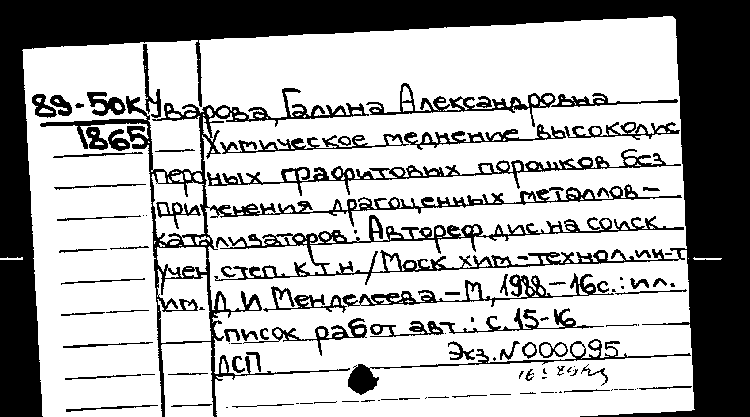 89-50К Уварова, Галина Александровна
1865 Химическое меднение высокодис
персных графитовых порошков без
применения драгоценных металлов-
катализаторов: Автореф. дис. на соиск.
учен. степ. к.т.н. / Моск хим.-технол. ин-т
им. Д.И. Менделеева. - М., 1988. - 16с.: ил.
Список работ авт.: с. 15-16
ДСП. Экз. N000095.